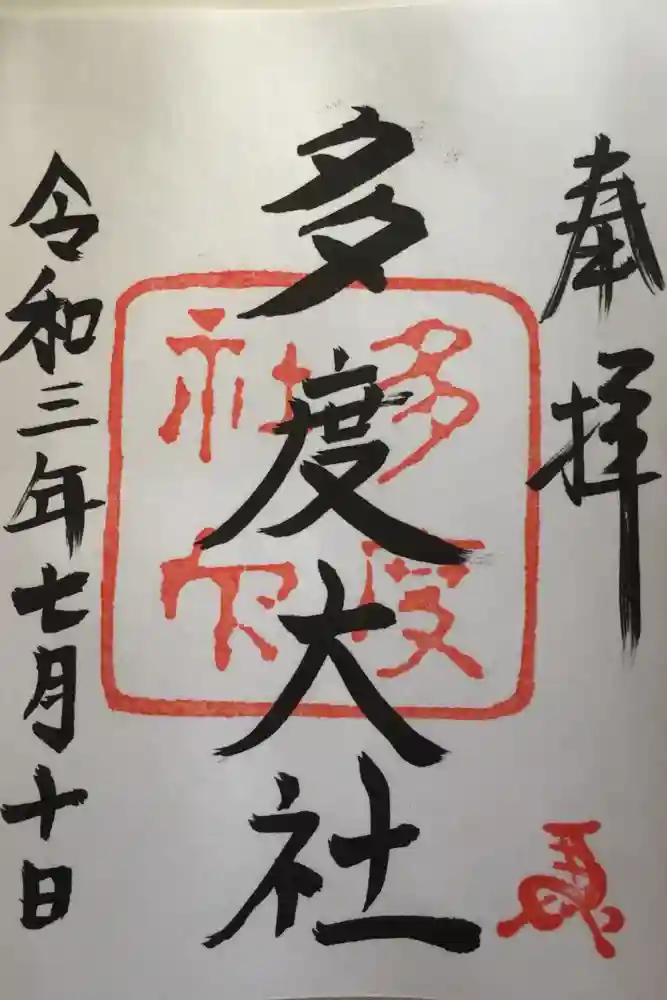 奉拝
多度大社
令和三年七月十日
多度
社印